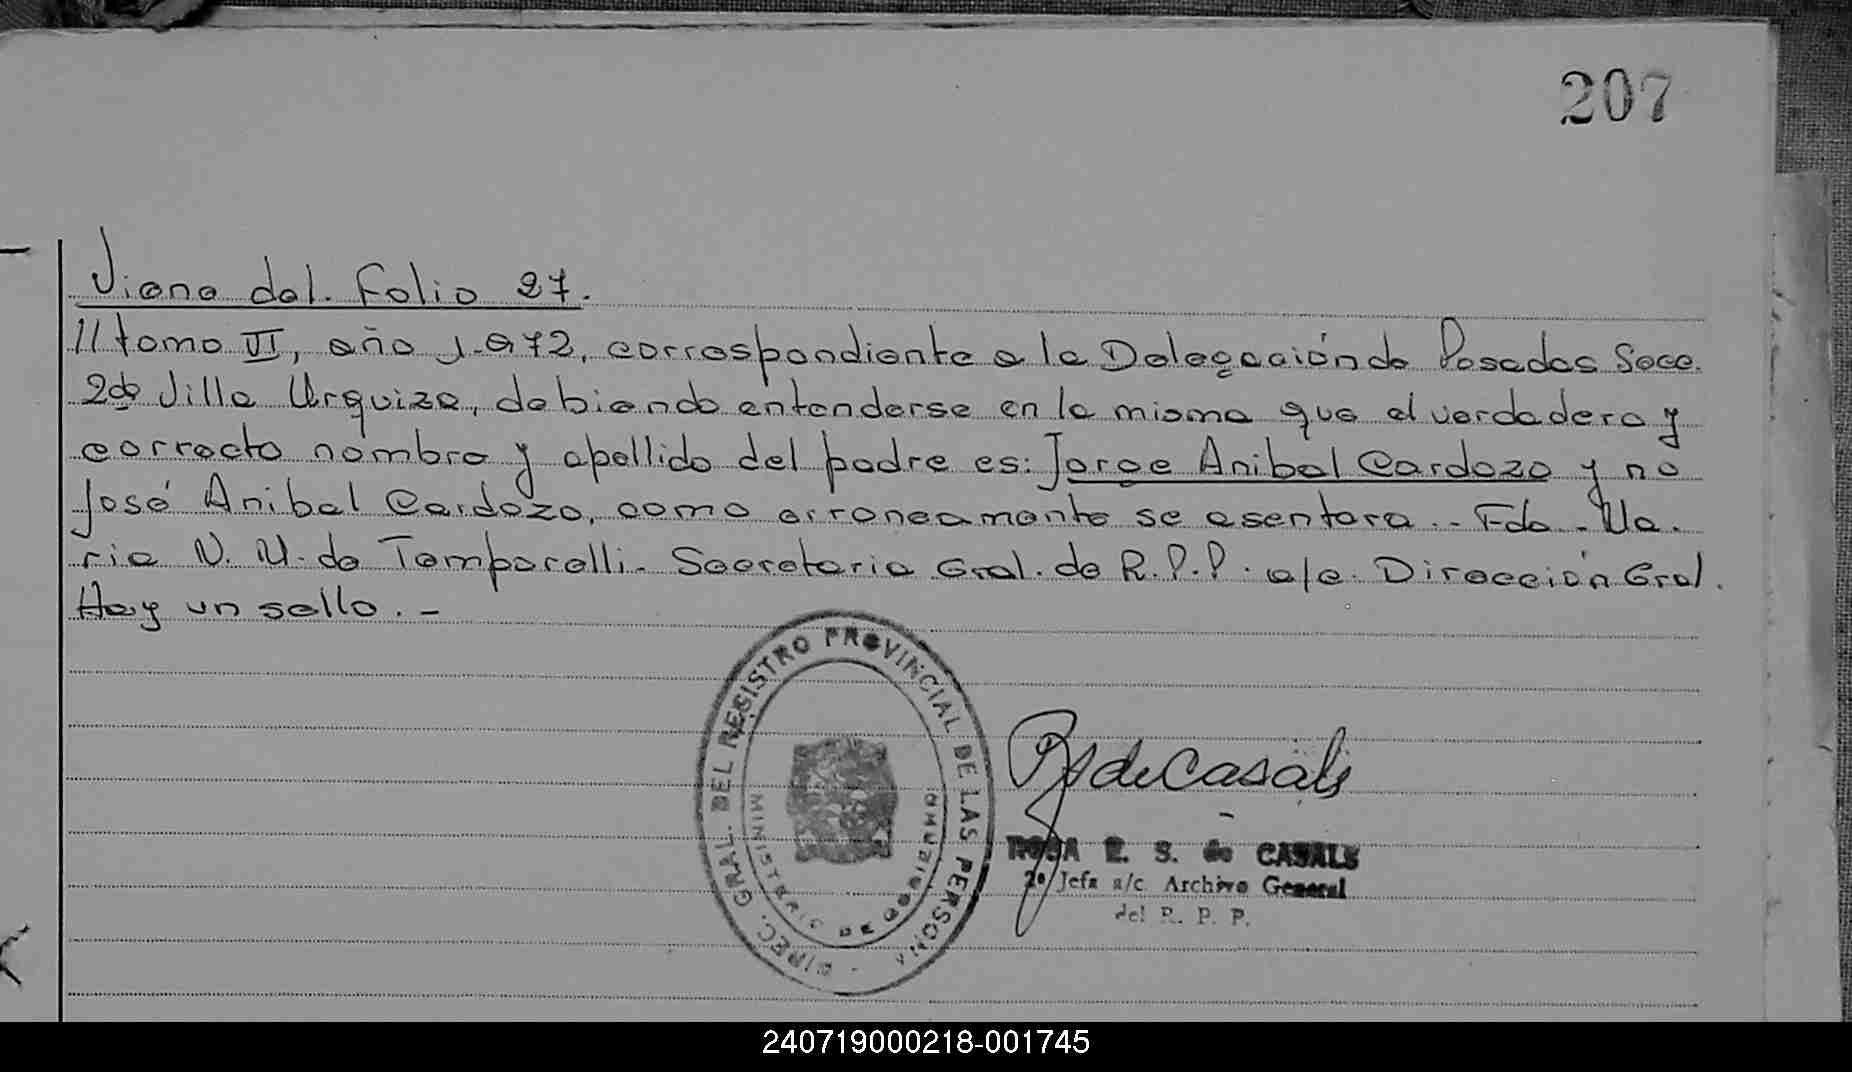 207
Viene del. Folio 27.
// tomo VI, año 1.972, correspondiente a la Delegación de Posadas Secc.
2da Villa Urquiza, debiendo entenderse en la misma que el verdadero y
correcto nombre y apellido del padre es: Jorge Anibal Cardozo y no
José Anibal Cardozo, como erroneamente se asentara.. Fdo. Ma.
ria N. M. de Tamparelli. Secretaria Gral. de R.P.P. a/c. Dirección Gral.
Hay un sello.-
DIREC. GRAL. DEL REGISTRO PROVINCIAL DE LAS PERSONA
MINISTERIO DE GOBIERNO
R S de Casals
ROSA E. S. de CASALS
2º Jefa a/c. Archivo General
del R. P. P.
240719000218-001745